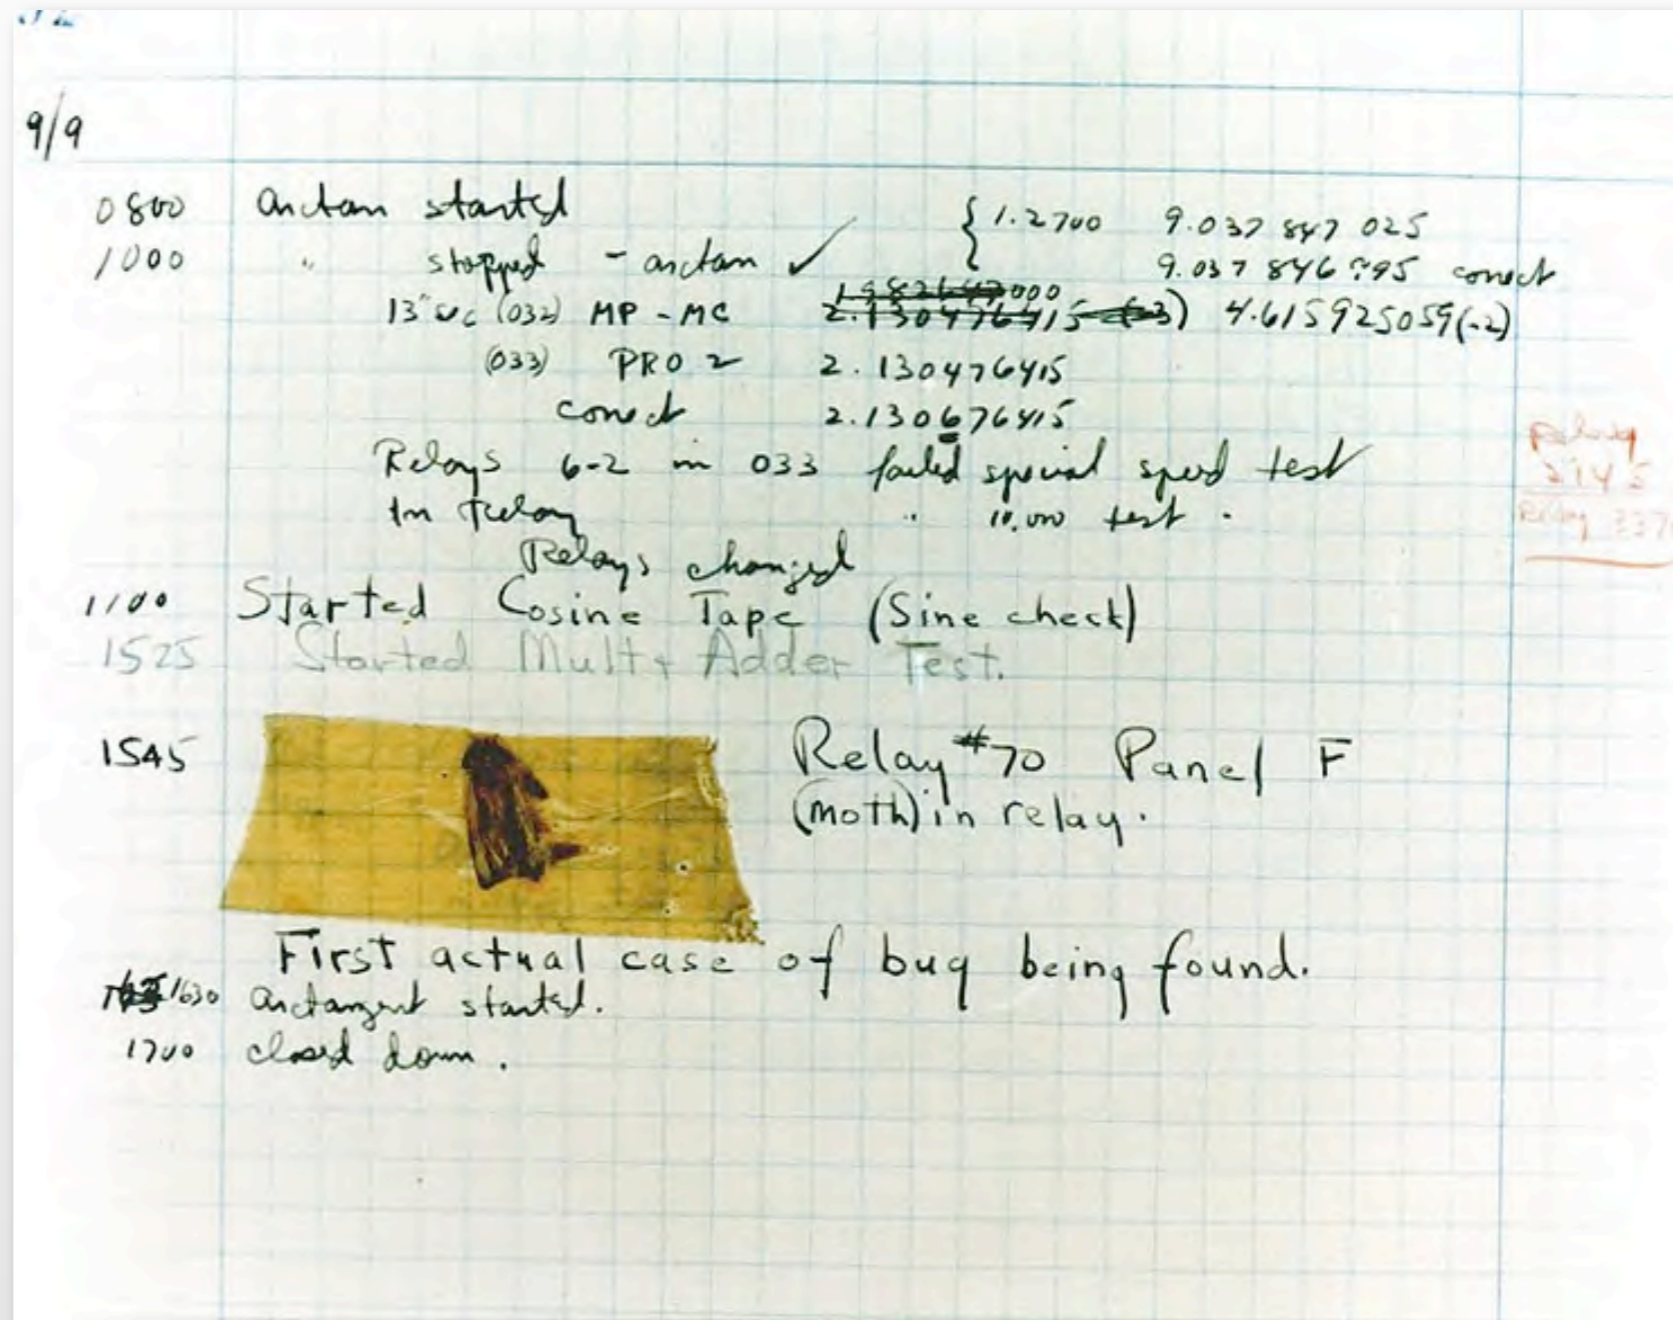 9/9
0800 arctan started { 1.2700 9.037 847 025
1000 " stopped - arctan ✓ 9.037 846 995 correct
13" (032) MP - MC 4.615925059(-2)
(033) PRO 2 2.130476415
correct 2.130676415
Relays 6-2 in 033 failed special speed test
In relay " 10,000 test .
Relays changed
1100 Started Cosine Tape (Sine check)
1525 Started Mult+ Adder Test.
1545 Relay #70 Panel F
(moth) in relay.
First actual case of bug being found.
1630 arctangent started.
1700 closed down.
Relay
2145
Relay 337